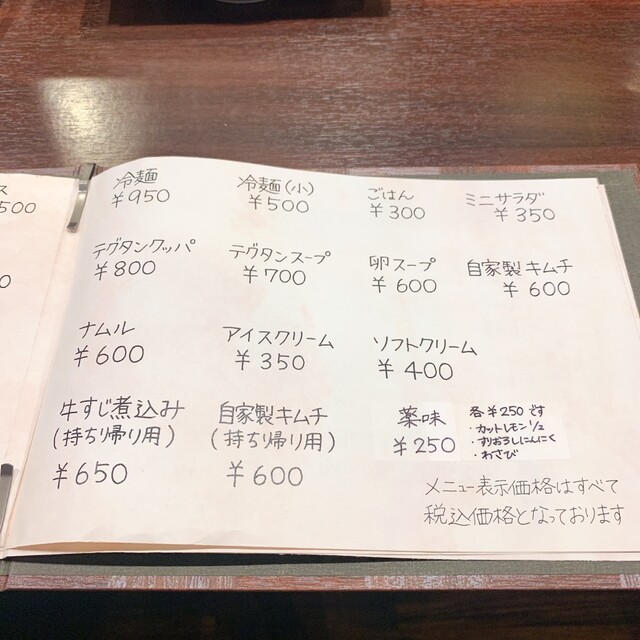 ス
500
0
冷麺
¥950
冷麺(小)
¥500
ごはん
¥300
ミニサラダ
¥350
テグタンクッパ
¥800
テグタンスープ
¥700
卵スープ
¥600
自家製キムチ
¥600
ナムル
¥600
アイスクリーム
¥350
ソフトクリーム
¥400
牛すじ煮込み
(持ち帰り用)
¥650
自家製キムチ
(持ち帰り用)
¥600
薬味
¥250
各¥250です
・カットレモン1/2
・すりおろしにんにく
・わさび
メニュー表示価格はすべて
税込価格となっております